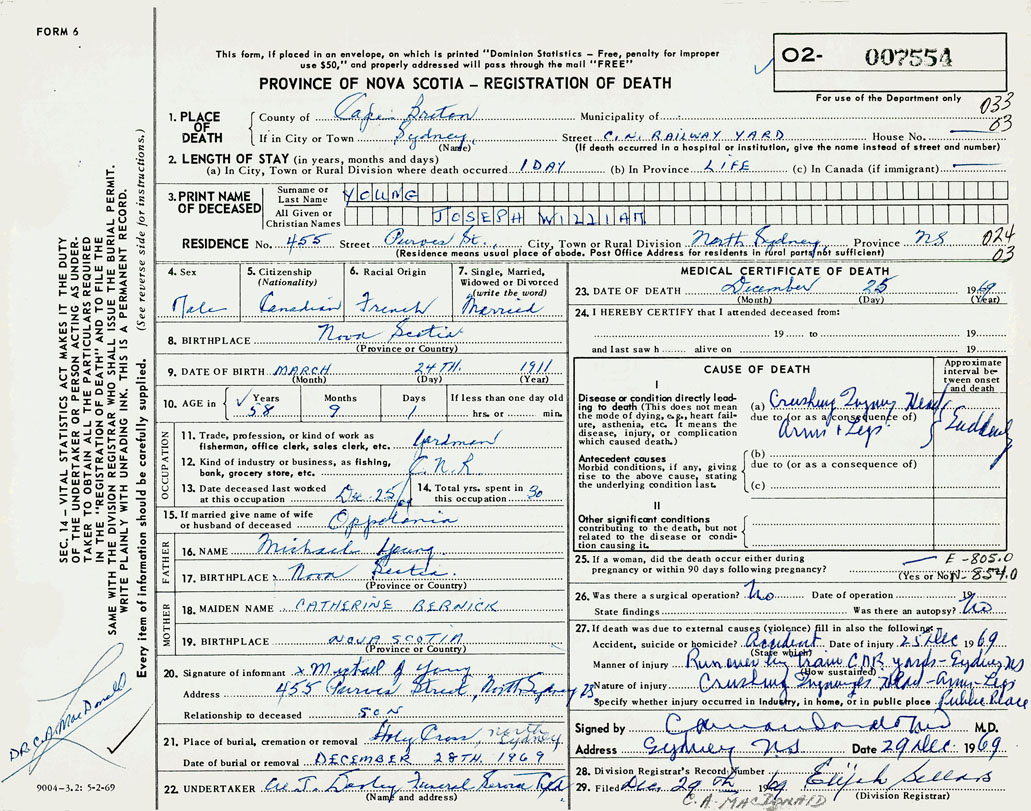 FORM 6
This form, if placed in an envelope, on which is printed "Dominion Statistics – Free, penalty for improper
use $50," and properly addressed will pass through the mail "FREE"
PROVINCE OF NOVA SCOTIA – REGISTRATION OF DEATH
02- 007554
For use of the Department only
033
03
1. PLACE OF DEATH
County of Cape Breton Municipality of
If in City or Town Sydney Street C.N. RAILWAY YARD House No.
(Name) (If death occurred in a hospital or institution, give the name instead of street and number)
2. LENGTH OF STAY (in years, months and days)
(a) In City, Town or Rural Division where death occurred 1 DAY (b) In Province LIFE (c) In Canada (if immigrant)
3. PRINT NAME OF DECEASED
Surname or Last Name YOUNG
All Given or Christian Names JOSEPH WILLIAM
RESIDENCE No. 455 Street Purves St., City, Town or Rural Division North Sydney, Province NS
024
03
(Residence means usual place of abode. Post Office Address for residents in rural parts not sufficient)
4. Sex
Male
5. Citizenship
(Nationality)
Canadian
6. Racial Origin
French
7. Single, Married,
Widowed or Divorced
(write the word)
Married
8. BIRTHPLACE Nova Scotia
(Province or Country)
9. DATE OF BIRTH MARCH 24TH. 1911
(Month) (Day) (Year)
10. AGE in
Years Months Days If less than one day old
58 9 1 hrs. or min.
OCCUPATION
11. Trade, profession, or kind of work as
fisherman, office clerk, sales clerk, etc. Yardman
12. Kind of industry or business, as fishing,
bank, grocery store, etc. C.N.R
13. Date deceased last worked
at this occupation Dec. 25/69
14. Total yrs. spent in
this occupation 30
15. If married give name of wife
or husband of deceased
FATHER
16. NAME Michael Young
17. BIRTHPLACE Nova Scotia
(Province or Country)
MOTHER
18. MAIDEN NAME CATHERINE BERNICK
19. BIRTHPLACE NOVA SCOTIA
(Province or Country)
20. Signature of informant x Michael J Young
Address 455 Purves Street, North Sydney NS
Relationship to deceased SON
21. Place of burial, cremation or removal Holy Cross, North Sydney
Date of burial or removal DECEMBER 28TH. 1969
22. UNDERTAKER W. J. Dooley Funeral Service Ltd
(Name and address)
MEDICAL CERTIFICATE OF DEATH
23. DATE OF DEATH December 25 1969
(Month) (Day) (Year)
24. I HEREBY CERTIFY that I attended deceased from:
19 to 19
and last saw h alive on 19
CAUSE OF DEATH
Approximate
interval be-
tween onset
and death
I
Disease or condition directly lead-
ing to death (This does not mean
the mode of dying, e.g., heart fail-
ure, asthenia, etc. It means the
disease, injury, or complication
which caused death.)
(a) Crushing Injury Head
due to (or as a consequence of)
Arms + Legs
Suddenly
Antecedent causes
Morbid conditions, if any, giving
rise to the above cause, stating
the underlying condition last.
(b)
due to (or as a consequence of)
(c)
II
Other significant conditions
contributing to the death, but not
related to the disease or condi-
tion causing it.
25. If a woman, did the death occur either during
pregnancy or within 90 days following pregnancy?
(Yes or No)
E-805.0
N-854.0
26. Was there a surgical operation? No Date of operation 19
State findings Was there an autopsy? No
27. If death was due to external causes (violence) fill in also the following:
Accident, suicide or homicide? Accident Date of injury 25 Dec 1969
(State which)
Manner of injury Run over by train C.N.R yards - Sydney NS
(How sustained)
Nature of injury Crushing Injuries Head - Arms - Legs
Specify whether injury occurred in Industry, in home, or in public place Public Place
Signed by M.D.
Address Sydney NS Date 29 Dec 1969
28. Division Registrar's Record Number
29. Filed Dec 29th 1969 Elijah Sellars
(Division Registrar)
C.A. MACDONALD
SEC. 14 – VITAL STATISTICS ACT MAKES IT THE DUTY
OF THE UNDERTAKER OR PERSON ACTING AS UNDER-
TAKER TO OBTAIN ALL THE PARTICULARS REQUIRED
IN THE "REGISTRATION OF DEATH" AND TO FILE THE
SAME WITH THE DIVISION REGISTRAR WHO SHALL ISSUE THE BURIAL PERMIT.
WRITE PLAINLY WITH UNFADING INK. THIS IS A PERMANENT RECORD.
Every item of information should be carefully supplied. (See reverse side for instructions.)
DR. C.A. MacDonald
9004–3.2: 5-2-69